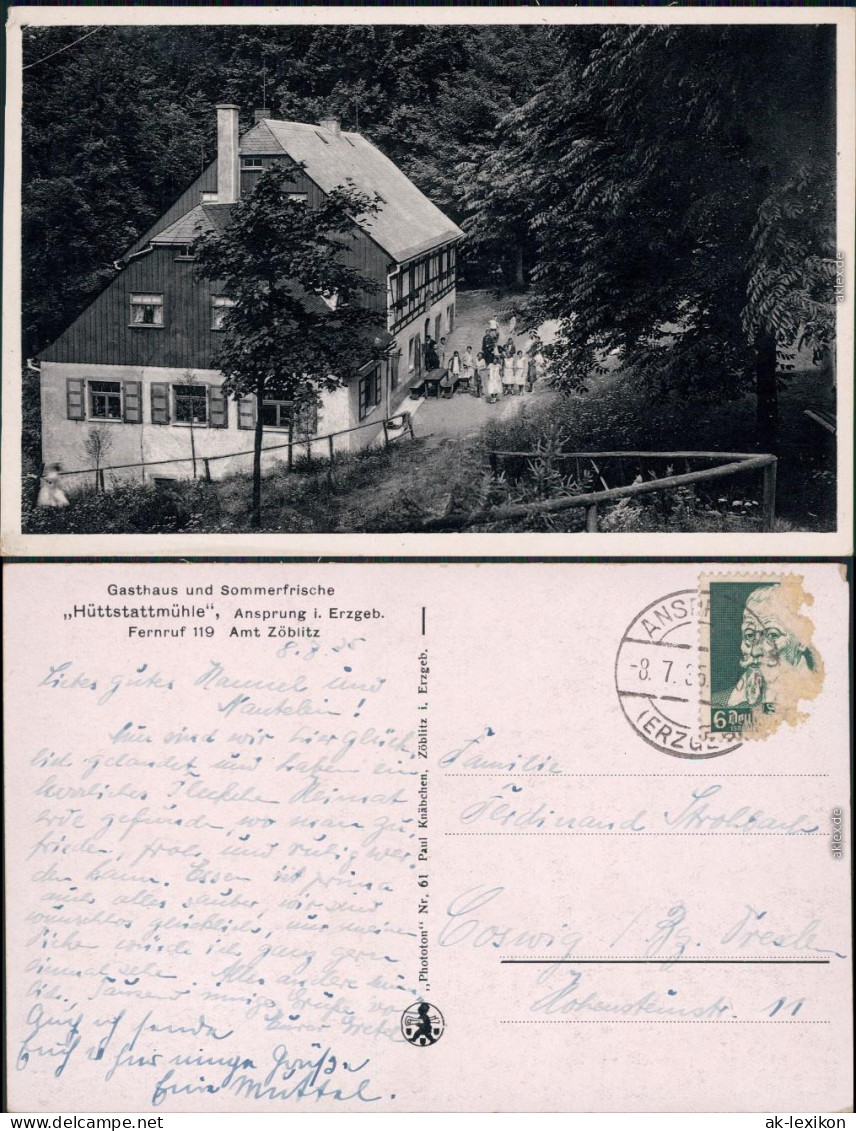 aklex.de
Gasthaus und Sommerfrische
„Hüttstattmühle", Ansprung i. Erzgeb.
Fernruf 119 Amt Zöblitz
8.7.35
Liebes gutes und
Nun sind wir hier glück-
lich gelandet und haben ein
herrliches Fleckchen Heimat
erde gefunden, wo man zu-
frieden, froh, und ruhig wer-
den kann. Essen ist prima
auch alles sauber, wir sind
wunschlos glücklich, nur meinen
würde ich ganz gern
einmal sehn. Alles andere münd-
lich. Tausend innige Grüße von
Eurer Grete
Auch ich sende
Euch innige Grüße
Eure Muttel.
„Phototon" Nr. 61 Paul Knäbchen, Zöblitz i. Erzgeb.
ANSPR
-8.7.35
(ERZGEB
6 Deut
Familie
Ferdinand Strohbach
Coswig / Bz. Dresden
Hohensteinstr. 11
aklex.de
www.ak-ansichtskarten.de
ak-lexikon